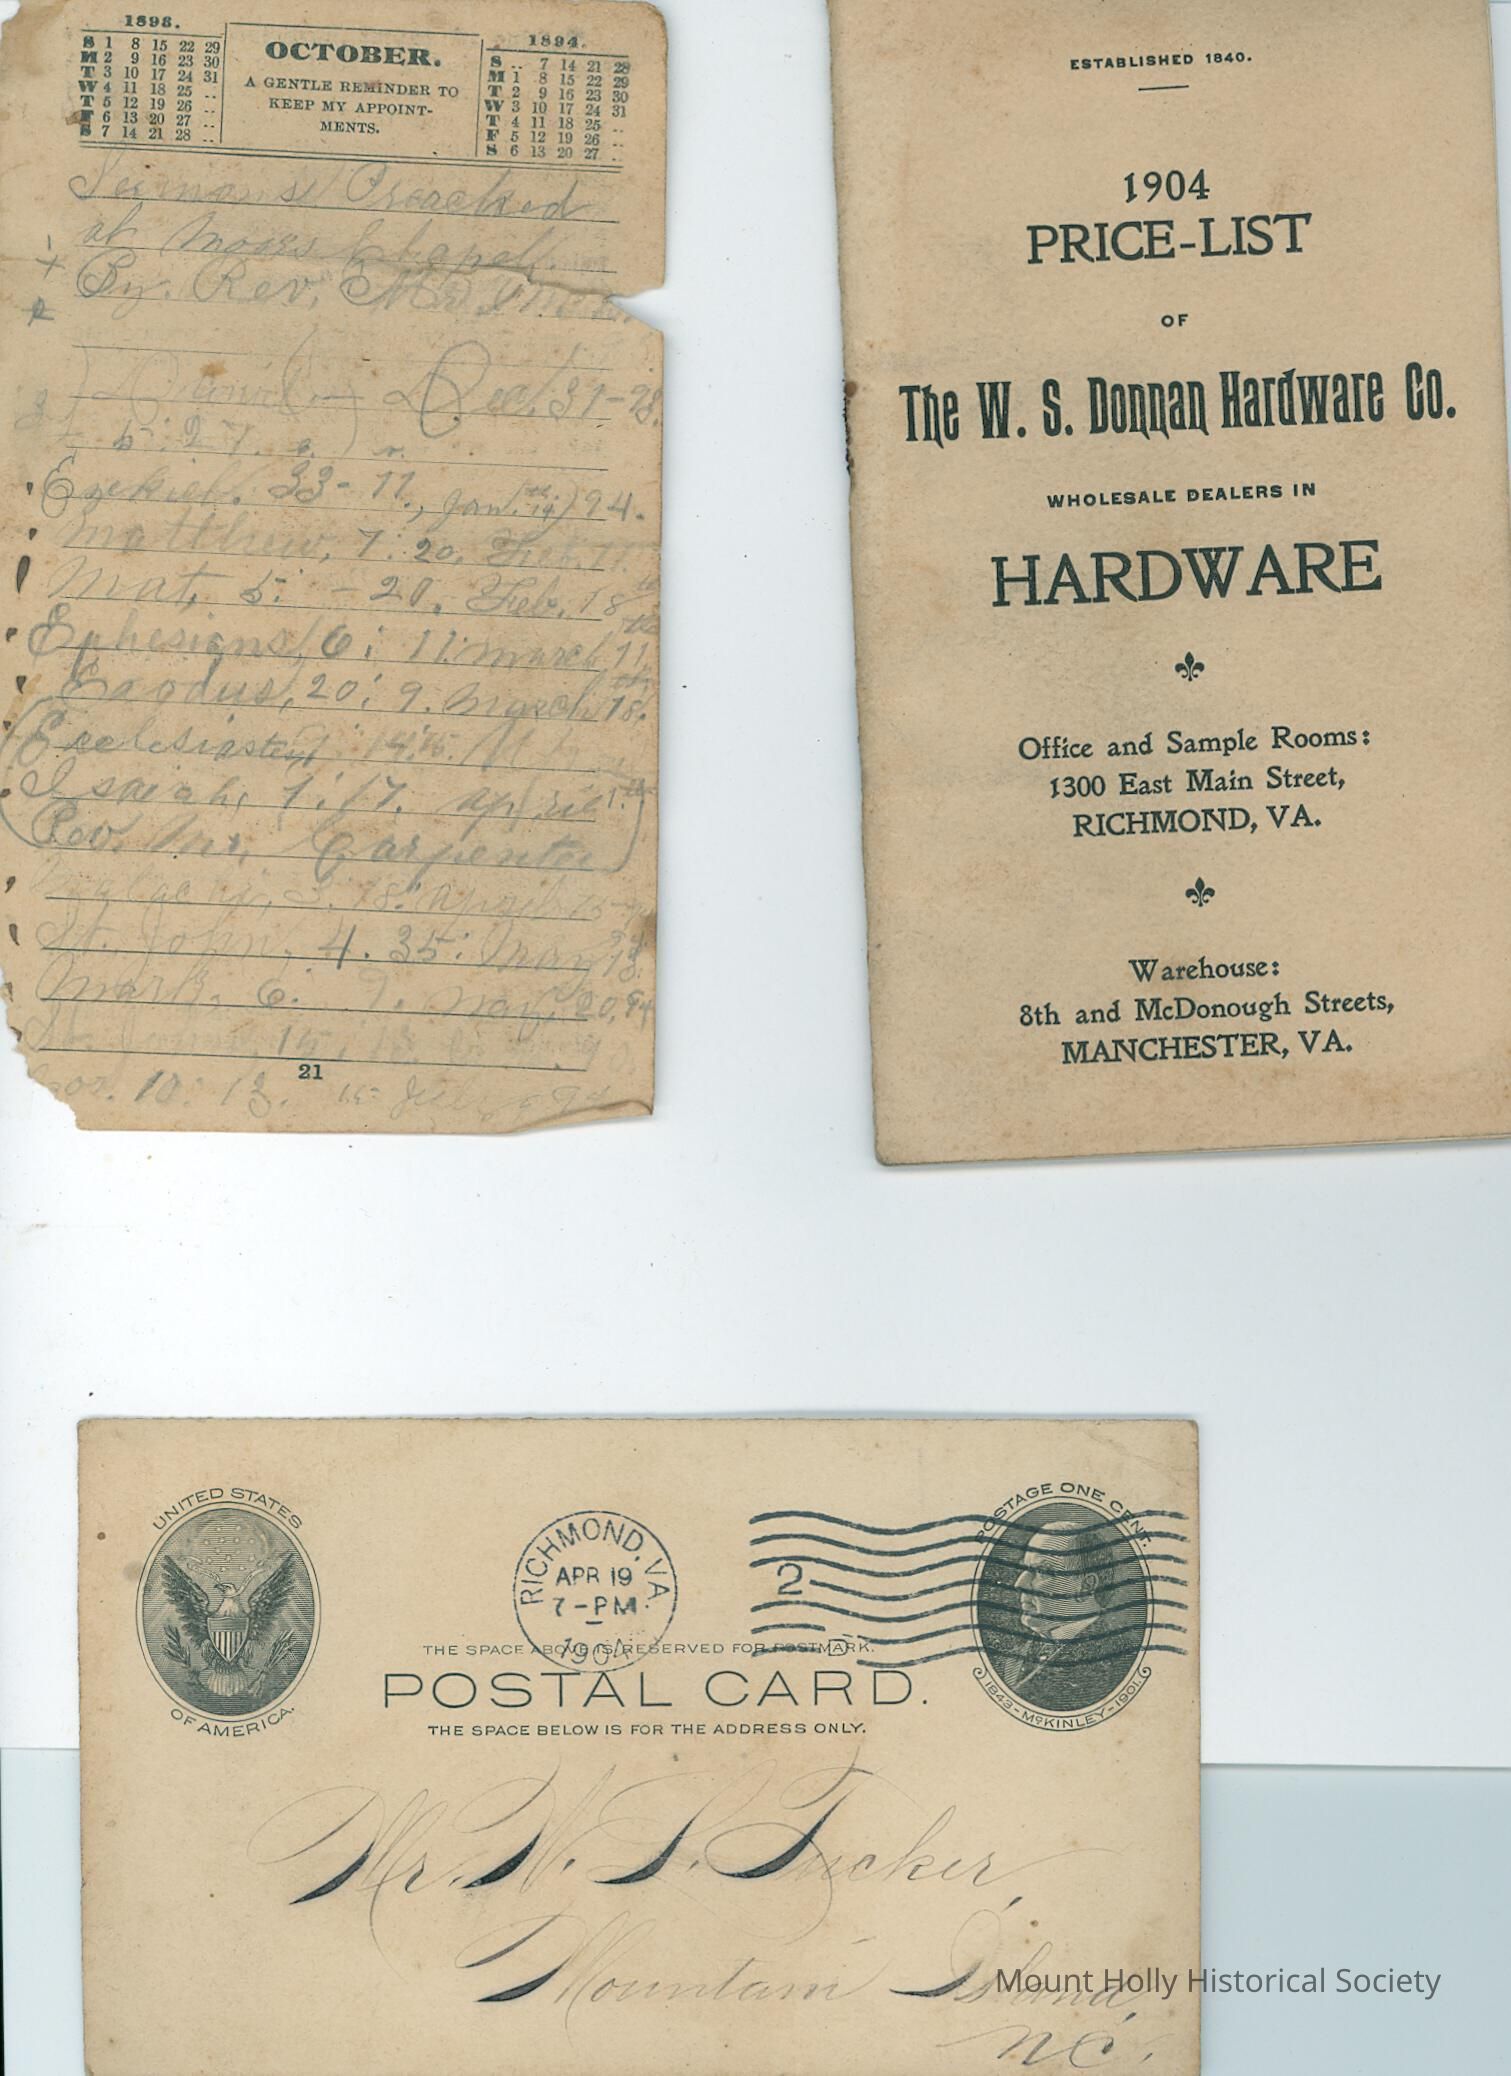 1893.
S 1 8 15 22 29
M 2 9 16 23 30
T 3 10 17 24 31
W 4 11 18 25 ..
T 5 12 19 26 ..
F 6 13 20 27 ..
S 7 14 21 28 ..
OCTOBER.
A GENTLE REMINDER TO
KEEP MY APPOINT-
MENTS.
1894.
S .. 7 14 21 28
M 1 8 15 22 29
T 2 9 16 23 30
W 3 10 17 24 31
T 4 11 18 25 ..
F 5 12 19 26 ..
S 6 13 20 27 ..
Sermons Preached
at Moors Chapel.
By. Rev. Mr.
Daniel Dec. 31-93.
5: 27.
Ezekiel. 33-11., Jan. 14th 94.
Matthew, 7:20, Feb. 11.
Mat, 5: -20. Feb. 18th
Ephesians, 6: 11: march 11th
Exodus, 20: 9. March 18th.
Ecclesiastes
Isaiah, 1:17. april 1.st
Rev. Mr. Carpenter
Malachi, 3. 18: April 15
St. John, 4. 35: May 13
Mark, 6. May, 20, 94
St.
21
Cor. 10: 13. 15 July 94
ESTABLISHED 1840.
1904
PRICE-LIST
OF
The W. S. Donnan Hardware Co.
WHOLESALE DEALERS IN
HARDWARE
Office and Sample Rooms:
1300 East Main Street,
RICHMOND, VA.
Warehouse:
8th and McDonough Streets,
MANCHESTER, VA.
UNITED STATES
OF AMERICA.
RICHMOND, VA.
APR 19
7-PM
1904
2
D
POSTAGE ONE CENT.
1843-McKINLEY-1901.
THE SPACE ABOVE IS RESERVED FOR POSTMARK.
POSTAL CARD.
THE SPACE BELOW IS FOR THE ADDRESS ONLY.
Mr. W. S. Tucker,
Mountain Island,
NC.
Mount Holly Historical Society